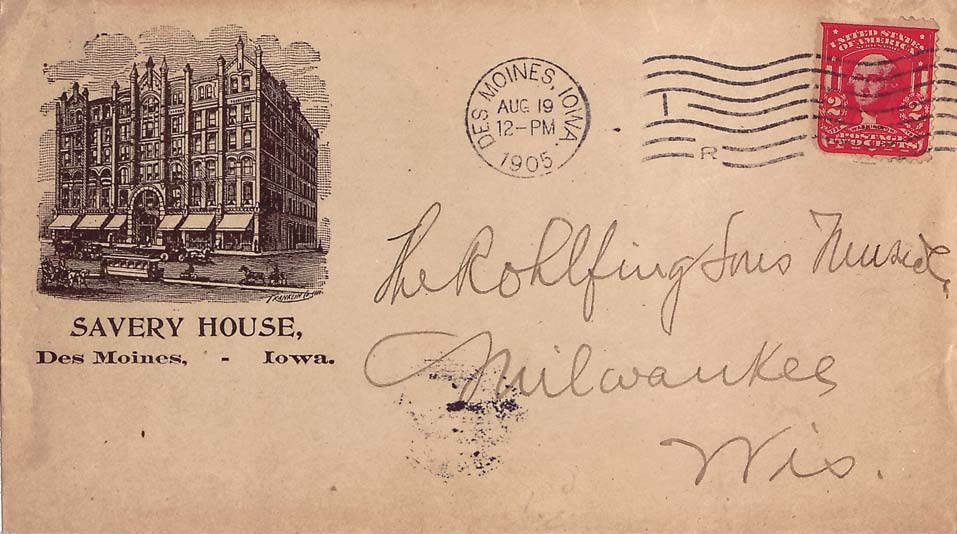 UNITED STATES
OF AMERICA
SERIES 1902
2 2
WASHINGTON
POSTAGE
TWO CENTS
DES MOINES, IOWA.
AUG 19
12-PM
1905
I
R
FRANKLIN
SAVERY HOUSE,
Des Moines, - Iowa.
The Rohlfing Sons Music
Milwaukee
Wis.